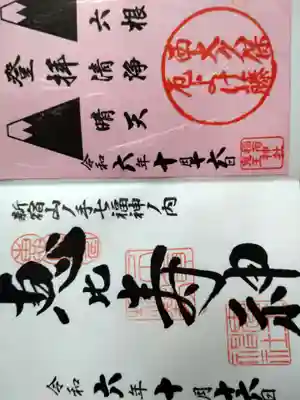 六根
登拝 清浄
晴天
西大久保
令和六年十月十六日
新宿山ノ手七福神ノ内
恵比寿神
令和六年十月十六日